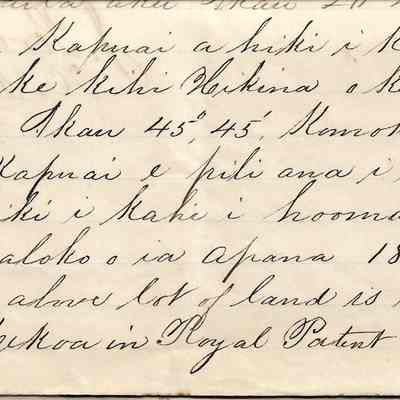 Kapuai a hiki i K
ke kihi Hikina o k
Ikau 45°, 45', Komoh
Kapuai e pili ana i
iki i kahi i hooma
aloko o ia Apana 18
above lot of land is
ekoa in Royal Patent